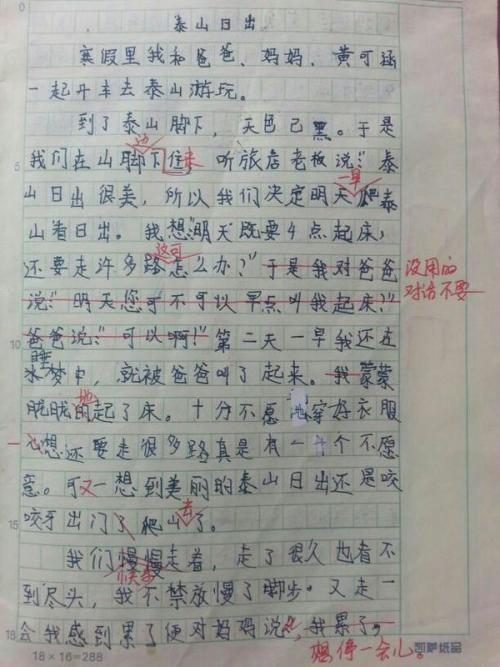 泰山日出
寒假里我和爸爸、妈妈、黄可涵
一起开车去泰山游玩。
到了泰山脚下，天色已黑。于是
边
我们在山脚下住来 听旅店老板说："泰
一早
山日出很美，所以我们决定明天爬泰
山看日出。我想："明天既要4点起床，
这可
还要走许多路怎么办？"于是我对爸爸
说："明天您可不可以早点叫我起床？"
没用的
对话不要
爸爸说："可以啊！"第二天一早我还在
睡梦中，就被爸爸叫了起来。我蒙蒙
地
胧胧的起了床。十分不愿 穿好衣服
心想还要走很多路真是有一千个不愿
意。可又一想到美丽的泰山日出还是咬
去
咬牙出门了爬山了。
我们慢慢走着，走了很久也看不
到尽头，我不禁放慢了脚步。又走一
会我感到累了便对妈妈说，我累了，
想停一会儿。
0
5
10
15
18
18×16=288
凯萨纸品